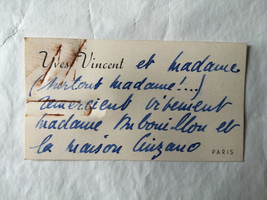 Yves Vincent et madame
(surtout madame!...)
remercient vivement
madame Dubouillon et
la maison Cinzano
PARIS